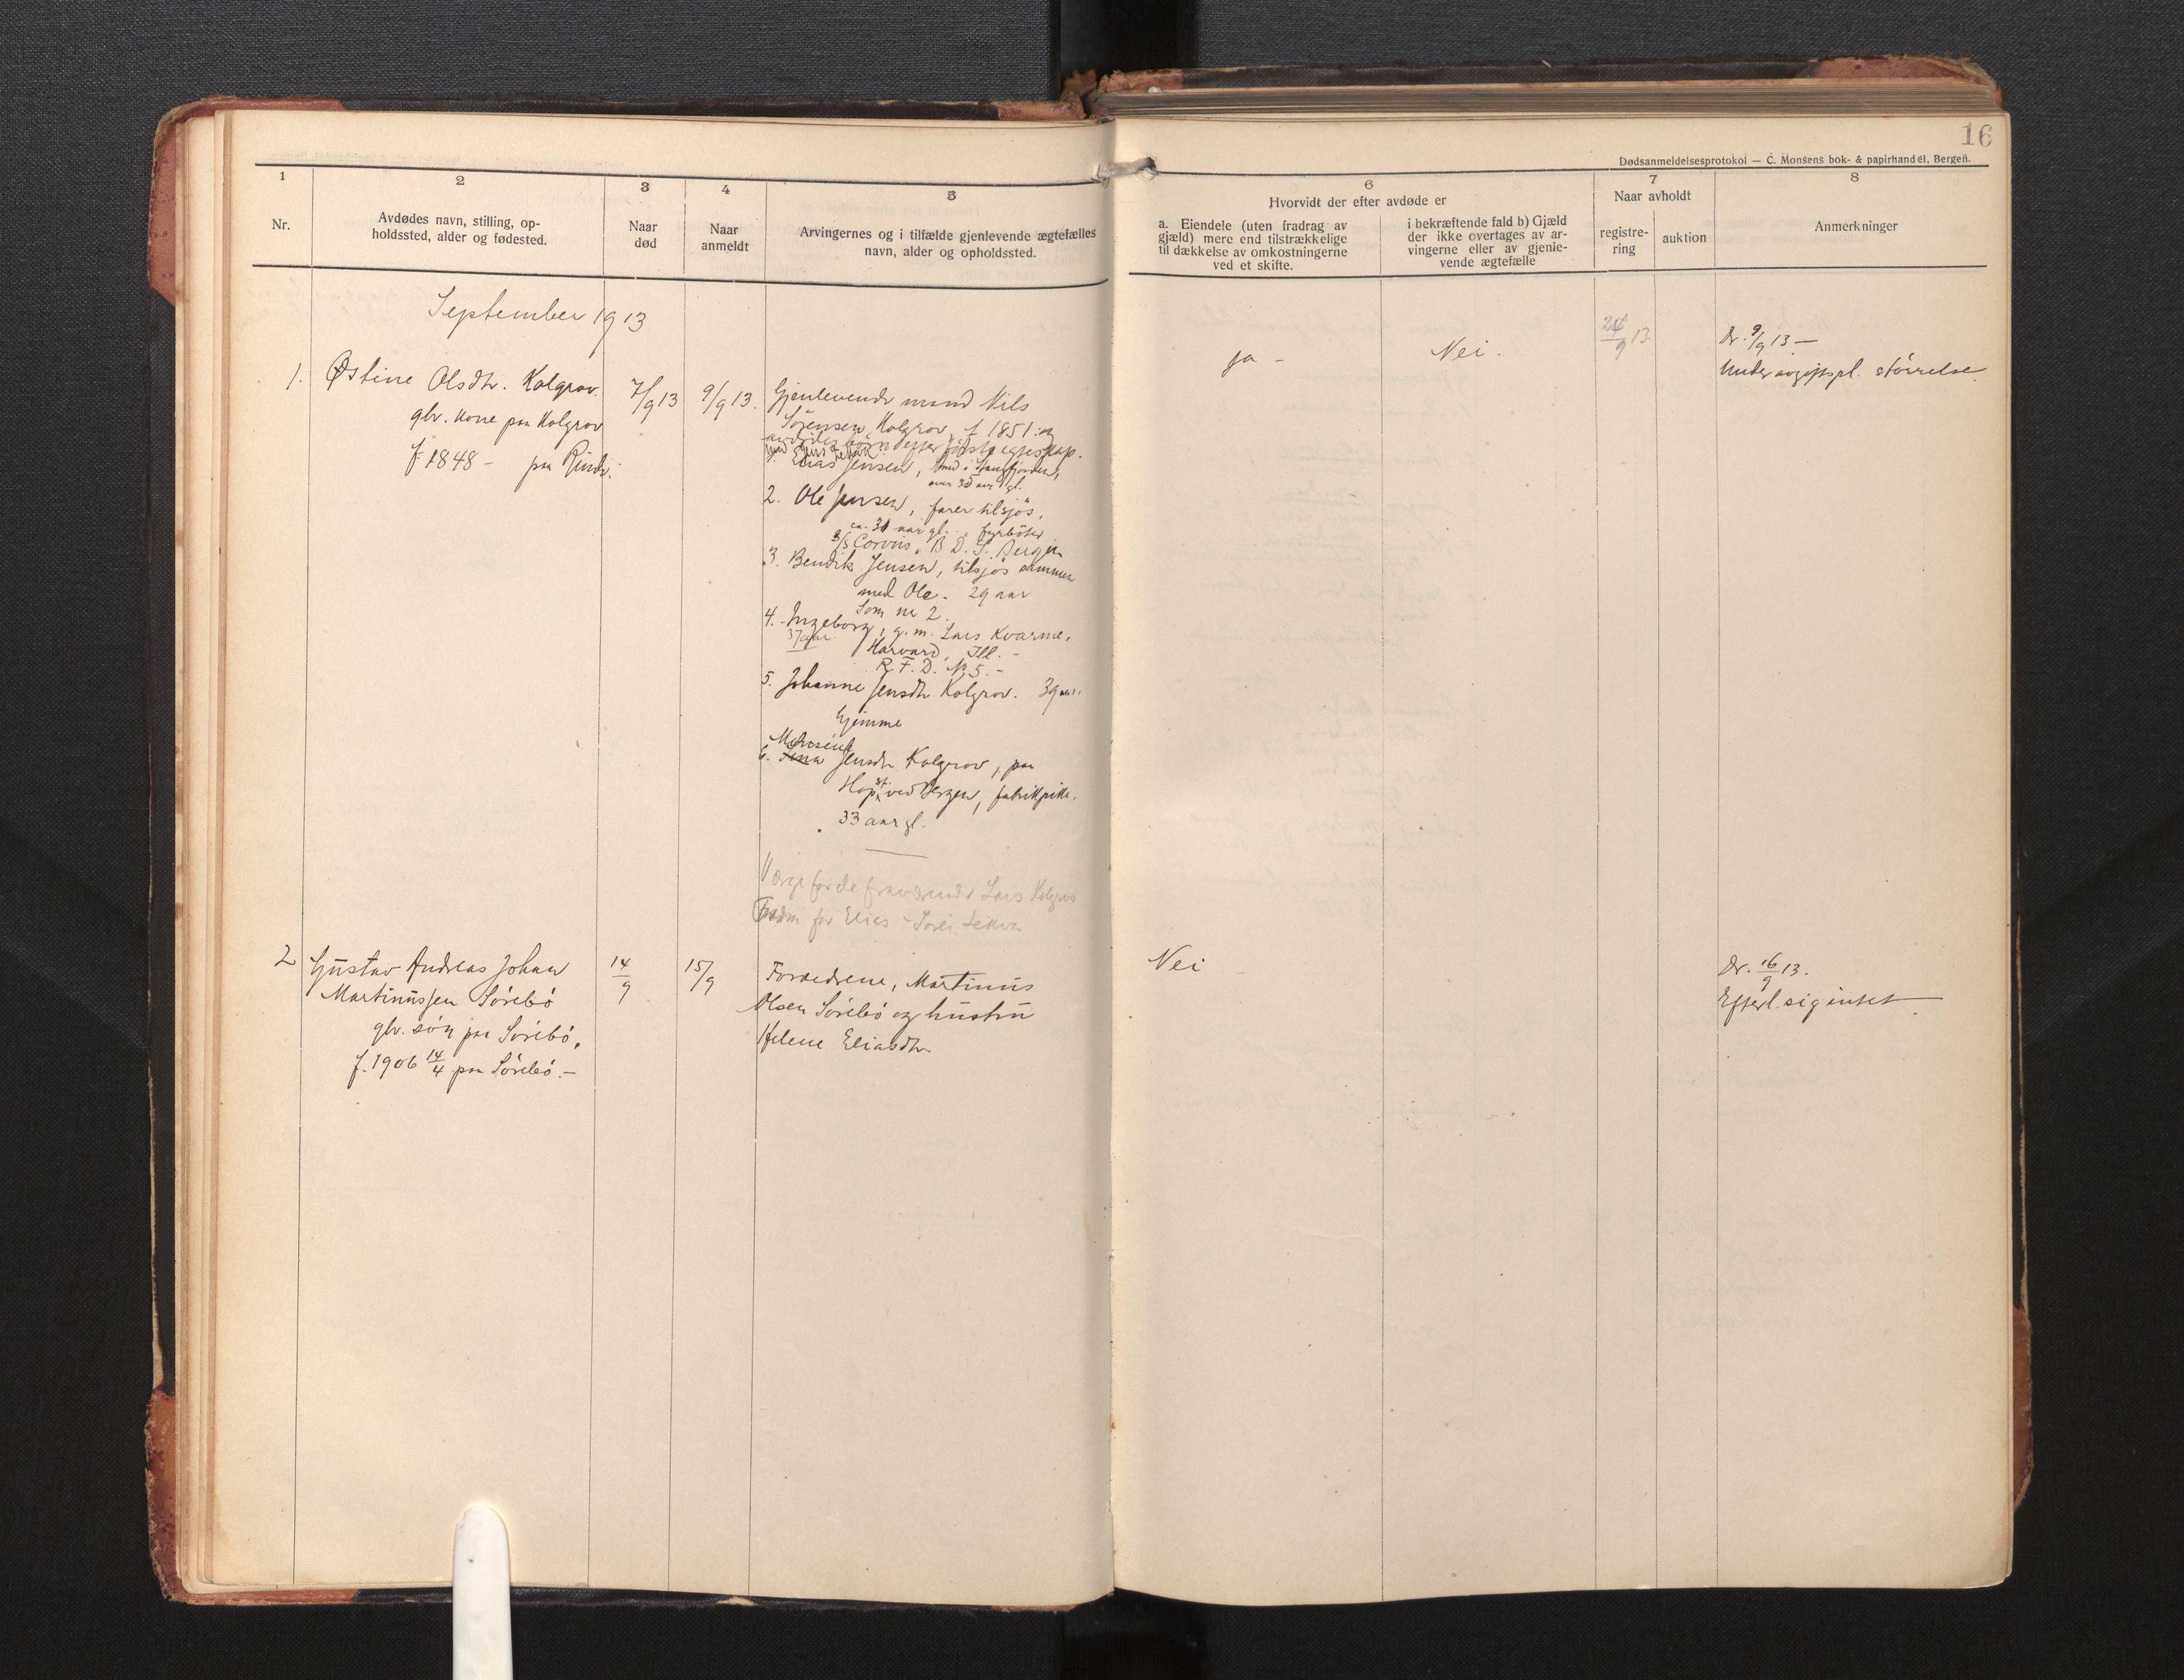 16
Dødsanmeldelsesprotokol — C. Monsens bok- & papirhandel, Bergen.
1
Nr.
2
Avdødes navn, stilling, op-
holdssted, alder og fødested.
3
Naar
død
4
Naar
anmeldt
5
Arvingernes og i tilfælde gjenlevende ægtefælles
navn, alder og opholdssted.
6
Hvorvidt der efter avdøde er
a. Eiendele (uten fradrag av
gjæld) mere end tilstrækkelige
til dækkelse av omkostningerne
ved et skifte.
i bekræftende fald b) Gjæld
der ikke overtages av ar-
vingerne eller av gjenle-
vende ægtefælle
7
Naar avholdt
registre-
ring
auktion
8
Anmerkninger
September 1913
1.
Østine Olsdtr. Kolgrov.
gbr. kone paa Kolgrov
f 1848 - paa Rind.
7/9 13
9/9 13.
Gjenlevende mand Nils
Sørensen Kolgrov, f 1851 og
avdødes børn efter første egteskap
1. Elias Jensen, smed i Stangfjorden,
over 30 aar gl.
2. Ole Jensen, farer tilsjøs,
ca. 31 aar gl., fyrbøter
s/s Corvus, B. D. S. Bergen
3. Bendik Jensen, tilsjøs sammen
med Ole. 29 aar
Som nr 2.
4. Ingeborg, g. m. Lars Kvarme,
37 aar.
Harvard, Ill. -
R. F. D. No 5. -
5. Johanne Jensdtr Kolgrov. 39 aar.
hjemme
6. Jensdtr Kolgrov, paa
Hop st. ved Bergen, fabrikpike,
33 aar gl.
Verge for de fraværende Lars Kolgrov
for Elias
ja -
Nei.
24/9 13
Dr. 9/9 13 -
Under avgiftspl. størrelse.
2
Gustav Andreas Johan
Martinussen Sørebø
gbr. søn paa Sørebø,
f. 1906 14/4 paa Sørebø. -
14/9
15/9
Forældrene, Martinus
Olsen Sørebø og hustru
Helene Eliasdtr
Nei
Dr. 16/9 13.
Efterl. sig intet